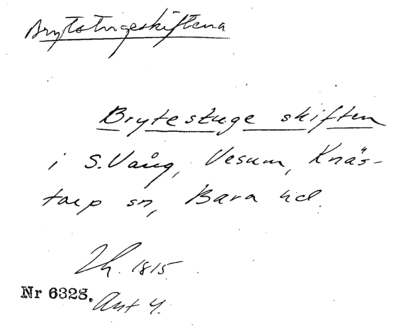 Brytstugeskiftena
Brytestuge skiften
i S. Vång, Vesum, Knäs-
torp sn, Bara hd.
Lh. 1815.
Nr 6328. Ant 4.